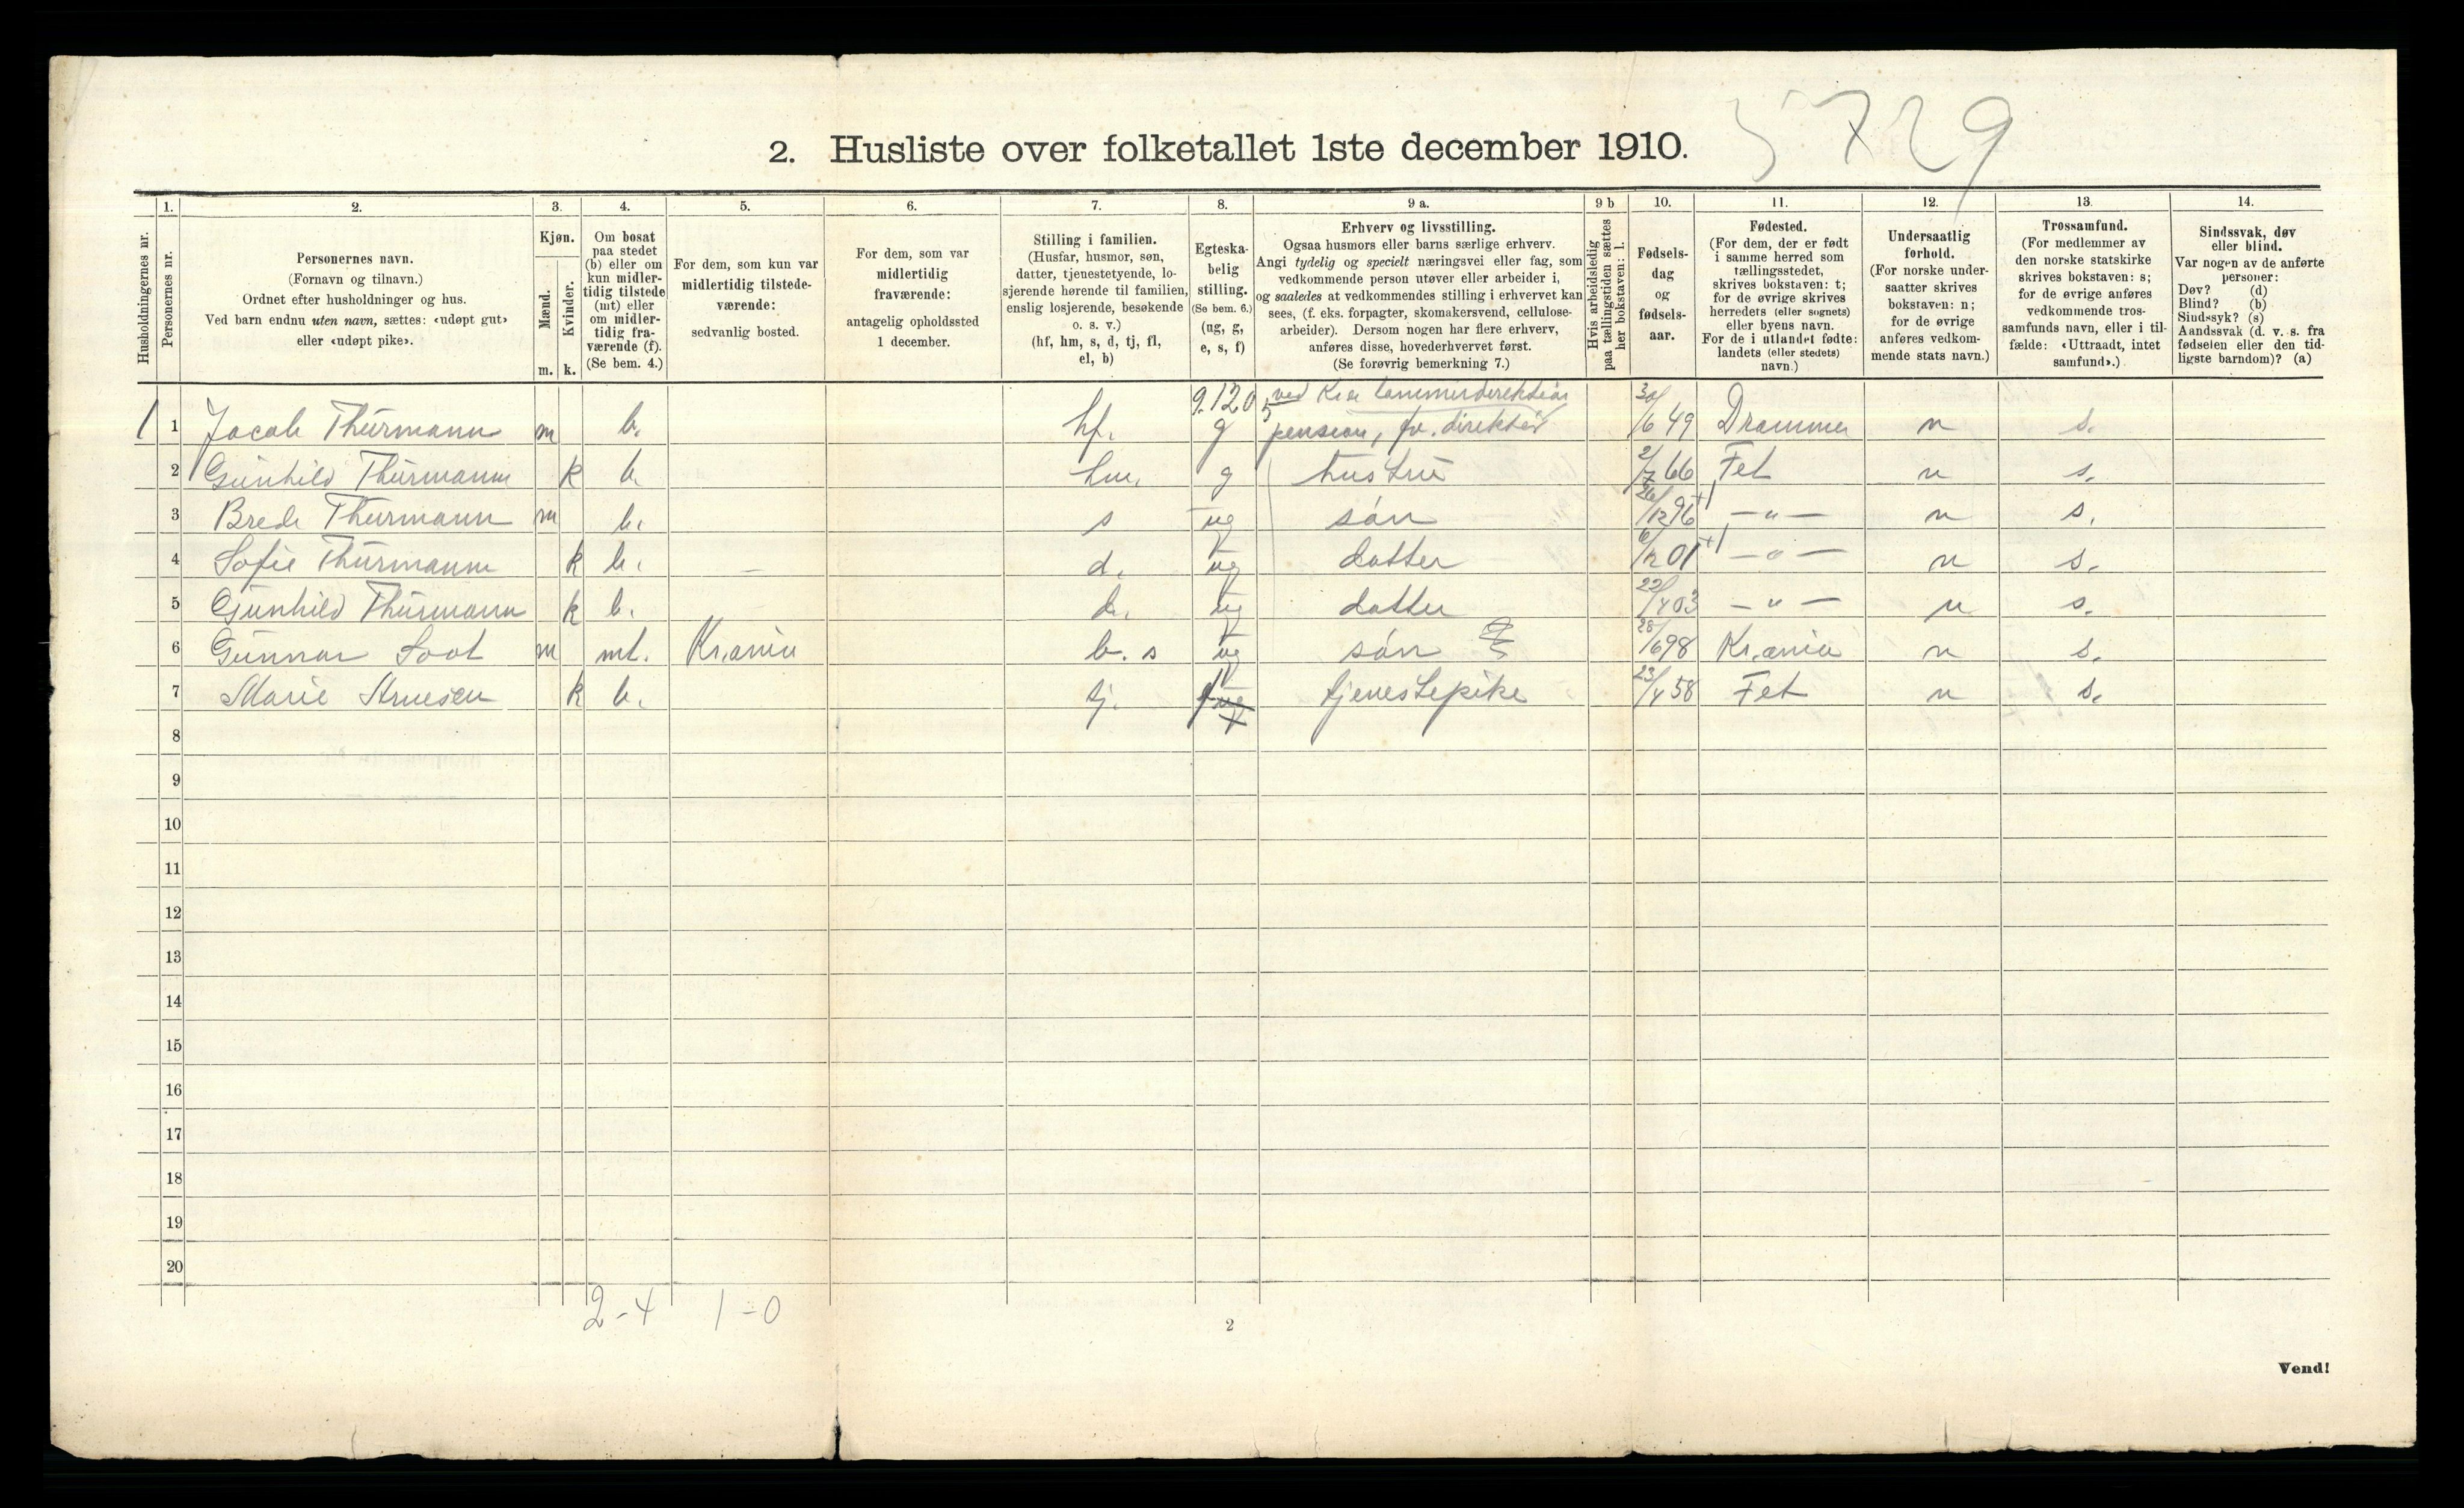 5729
2. Husliste over folketallet 1ste december 1910.
Husholdningernes nr.
1.
Personernes nr.
2.
Personernes navn.
(Fornavn og tilnavn.)
Ordnet efter husholdninger og hus.
Ved barn endnu uten navn, sættes: «udøpt gut»
eller «udøpt pike».
3.
Kjøn.
Mænd.
Kvinder.
m. k.
4.
Om bosat
paa stedet
(b) eller om
kun midler-
tidig tilstede
(mt) eller
om midler-
tidig fra-
værende (f).
(Se bem. 4.)
5.
For dem, som kun var
midlertidig tilstede-
værende:
sedvanlig bosted.
6.
For dem, som var
midlertidig
fraværende:
antagelig opholdssted
1 december.
7.
Stilling i familien.
(Husfar, husmor, søn,
datter, tjenestetyende, lo-
sjerende hørende til familien,
enslig losjerende, besøkende
o. s. v.)
(hf, hm, s, d, tj, fl,
el, b)
8.
Egteska-
belig
stilling.
(Se bem. 6.)
(ug, g,
e, s, f)
9 a.
Erhverv og livsstilling.
Ogsaa husmors eller barns særlige erhverv.
Angi tydelig og specielt næringsvei eller fag, som
vedkommende person utøver eller arbeider i,
og saaledes at vedkommendes stilling i erhvervet kan
sees, (f. eks. forpagter, skomakersvend, cellulose-
arbeider). Dersom nogen har flere erhverv,
anføres disse, hovederhvervet først.
(Se forøvrig bemerkning 7.)
9 b
Hvis arbeidsledig
paa tællingstiden sættes
her bokstaven: l.
10.
Fødsels-
dag
og
fødsels-
aar.
11.
Fødested.
(For dem, der er født
i samme herred som
tællingsstedet,
skrives bokstaven: t;
for de øvrige skrives
herredets (eller sognets)
eller byens navn.
For de i utlandet fødte:
landets (eller stedets)
navn.)
12.
Undersaatlig
forhold.
(For norske under-
saatter skrives
bokstaven: n;
for de øvrige
anføres vedkom-
mende stats navn.)
13.
Trossamfund.
(For medlemmer av
den norske statskirke
skrives bokstaven: s;
for de øvrige anføres
vedkommende tros-
samfunds navn, eller i til-
fælde: «Uttraadt, intet
samfund».)
14.
Sindssvak, døv
eller blind.
Var nogen av de anførte
personer:
Døv? (d)
Blind? (b)
Sindssyk? (s)
Aandssvak (d. v. s. fra
fødselen eller den tid-
ligste barndom)? (a)
9.120 5 ved Kr.a tømmerdirektion
1 1 Jacob Thurmann m b. hf. g pension, fv. direktør 30/6 49 Drammen n s.
2 Gunhild Thurmann k b. hm. g hustru 2/7 66 Fet n s.
3 Brede Thurmann m b. s ug søn 26/12 96 +1 — " — n s.
4 Sofie Thurmann k b. — d. ug datter 6/12 01 +1 — " — n s.
5 Gunhild Thurmann k b. d. ug datter 22/4 03 — " — n s.
6 Gunnar Soot m mt. Kr.ania b. s ug søn 28/6 98 Kr.ania n s.
7 Marie k b. tj. tjenestepike 23/4 58 Fet n s.
8
9
10
11
12
13
14
15
16
17
18
19
20
2-4 1-0
2
Vend!